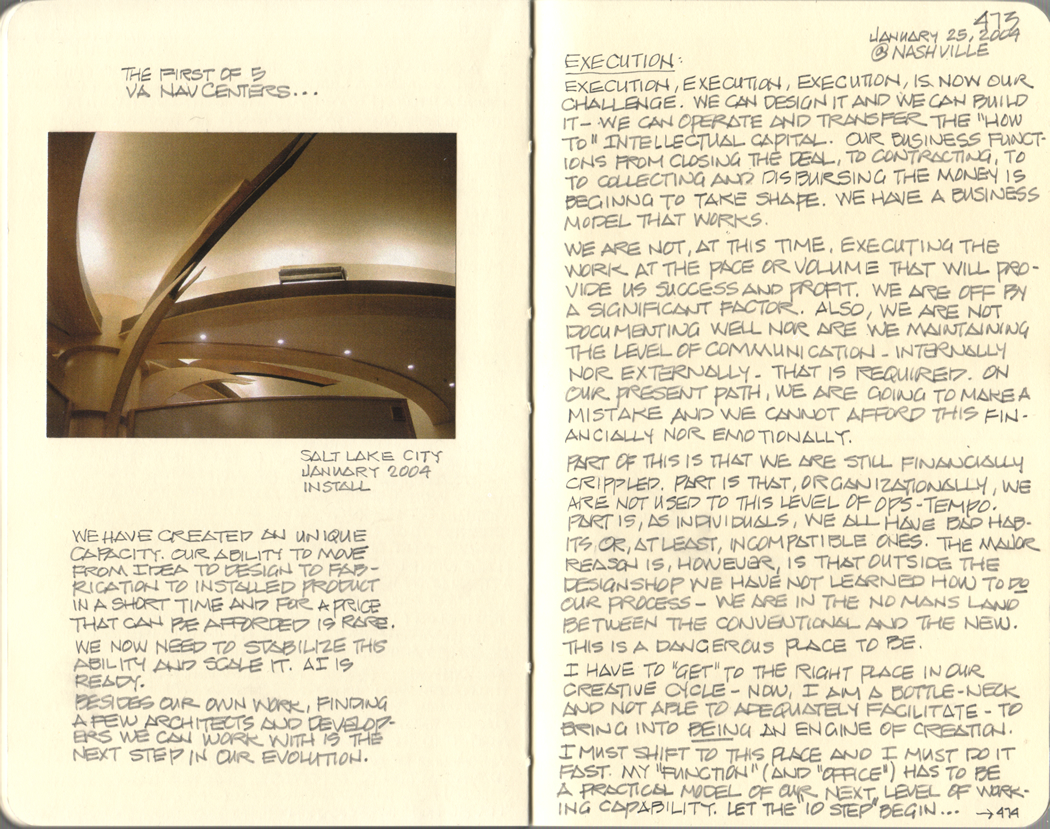 THE FIRST OF 5
VA NAVCENTERS...
SALT LAKE CITY
JANUARY 2004
INSTALL
WE HAVE CREATED AN UNIQUE
CAPACITY. OUR ABILITY TO MOVE
FROM IDEA TO DESIGN TO FAB-
RICATION TO INSTALLED PRODUCT
IN A SHORT TIME AND FOR A PRICE
THAT CAN BE AFFORDED IS RARE.
WE NOW NEED TO STABILIZE THIS
ABILITY AND SCALE IT. AI IS
READY.
BESIDES OUR OWN WORK, FINDING
A FEW ARCHITECTS AND DEVELOP-
ERS WE CAN WORK WITH IS THE
NEXT STEP IN OUR EVOLUTION.
473
JANUARY 25, 2004
@ NASHVILLE
EXECUTION:
EXECUTION, EXECUTION, EXECUTION, IS NOW OUR
CHALLENGE. WE CAN DESIGN IT AND WE CAN BUILD
IT - WE CAN OPERATE AND TRANSFER THE "HOW
TO" INTELLECTUAL CAPITAL. OUR BUSINESS FUNCT-
IONS FROM CLOSING THE DEAL, TO CONTRACTING, TO
TO COLLECTING AND DISBURSING THE MONEY IS
BEGINNG TO TAKE SHAPE. WE HAVE A BUSINESS
MODEL THAT WORKS.
WE ARE NOT, AT THIS TIME, EXECUTING THE
WORK AT THE PACE OR VOLUME THAT WILL PRO-
VIDE US SUCCESS AND PROFIT. WE ARE OFF BY
A SIGNIFICANT FACTOR. ALSO, WE ARE NOT
DOCUMENTING WELL NOR ARE WE MAINTAINING
THE LEVEL OF COMMUNICATION - INTERNALLY
NOR EXTERNALLY - THAT IS REQUIRED. ON
OUR PRESENT PATH, WE ARE GOING TO MAKE A
MISTAKE AND WE CANNOT AFFORD THIS FIN-
ANCIALLY NOR EMOTIONALLY.
PART OF THIS IS THAT WE ARE STILL FINANCIALLY
CRIPPLED. PART IS THAT, ORGANIZATIONALLY, WE
ARE NOT USED TO THIS LEVEL OF OPS-TEMPO.
PART IS, AS INDIVIDUALS, WE ALL HAVE BAD HAB-
ITS OR, AT LEAST, INCOMPATIBLE ONES. THE MAJOR
REASON IS, HOWEVER, IS THAT OUTSIDE THE
DESIGNSHOP WE HAVE NOT LEARNED HOW TO DO
OUR PROCESS - WE ARE IN THE NO MANS LAND
BETWEEN THE CONVENTIONAL AND THE NEW.
THIS IS A DANGEROUS PLACE TO BE.
I HAVE TO "GET" TO THE RIGHT PLACE IN OUR
CREATIVE CYCLE - NOW, I AM A BOTTLE-NECK
AND NOT ABLE TO ADEQUATELY FACILITATE - TO
BRING INTO BEING AN ENGINE OF CREATION.
I MUST SHIFT TO THIS PLACE AND I MUST DO IT
FAST. MY "FUNCTION" (AND "OFFICE") HAS TO BE
A PRACTICAL MODEL OF OUR NEXT LEVEL OF WORK-
ING CAPABILITY. LET THE "10 STEP" BEGIN... → 474